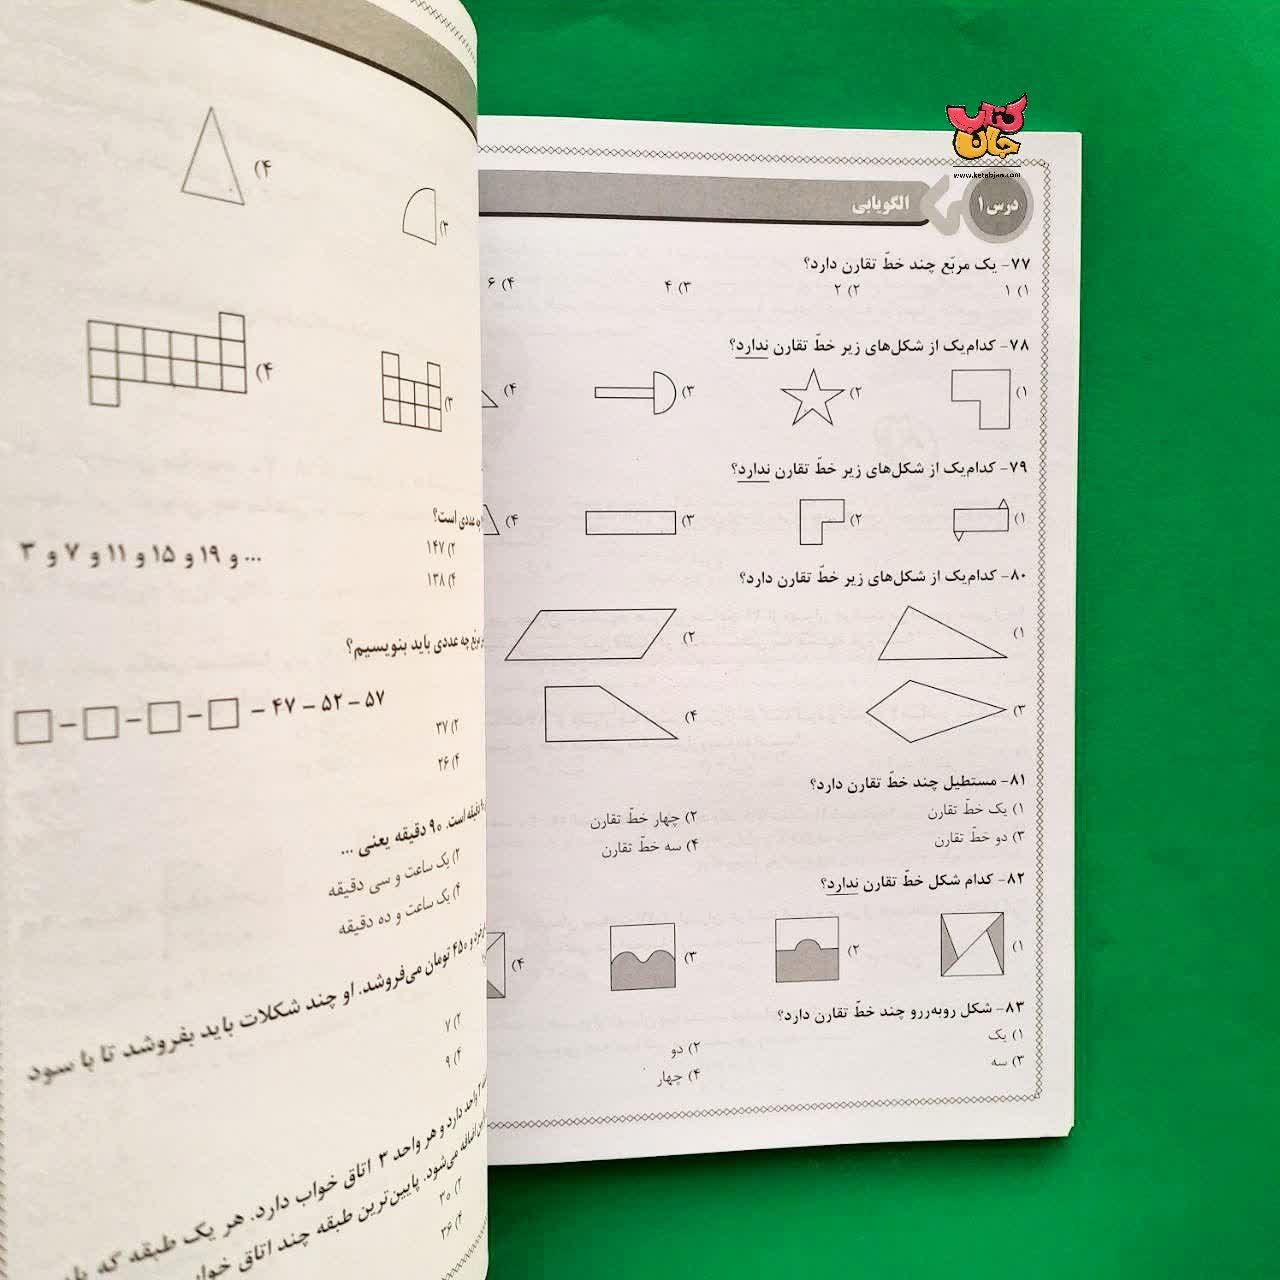 کتاب جان
www.ketabjan.com
درس ۱
الگویابی
۷۷- یک مربّع چند خطّ تقارن دارد؟
۱) ۱ ۲) ۲ ۳) ۴ ۴) ۶
۷۸- کدام‌یک از شکل‌های زیر خطّ تقارن ندارد؟
۱) ۲) ۳) ۴)
۷۹- کدام‌یک از شکل‌های زیر خطّ تقارن ندارد؟
۱) ۲) ۳) ۴)
۸۰- کدام‌یک از شکل‌های زیر خطّ تقارن دارد؟
۱) ۲)
۳) ۴)
۸۱- مستطیل چند خطّ تقارن دارد؟
۱) یک خطّ تقارن ۲) چهار خطّ تقارن
۳) دو خطّ تقارن ۴) سه خطّ تقارن
۸۲- کدام شکل خطّ تقارن ندارد؟
۱) ۲) ۳) ۴)
۸۳- شکل روبه‌ررو چند خطّ تقارن دارد؟
۱) یک ۲) دو
۳) سه ۴) چهار
۳) ۴)
۳) ۴)
چه عددی است؟
۳ و ۷ و ۱۱ و ۱۵ و ۱۹ و ...
۲) ۱۴۷
۴) ۱۳۸
مربّع چه عددی باید بنویسیم؟
۵۷ – ۵۲ – ۴۷ – □ – □ – □ – □
۲) ۳۷
۴) ۲۶
دقیقه است. ۹۰ دقیقه یعنی ...
۲) یک ساعت و سی دقیقه
۴) یک ساعت و ده دقیقه
و ۴۵۰ تومان می‌فروشد. او چند شکلات باید بفروشد تا با سود
۲) ۷
۴) ۹
واحد دارد و هر واحد ۳ اتاق خواب دارد. هر یک طبقه که
اضافه می‌شود. پایین‌ترین طبقه چند اتاق
۲) ۳۰
۴) ۳۶